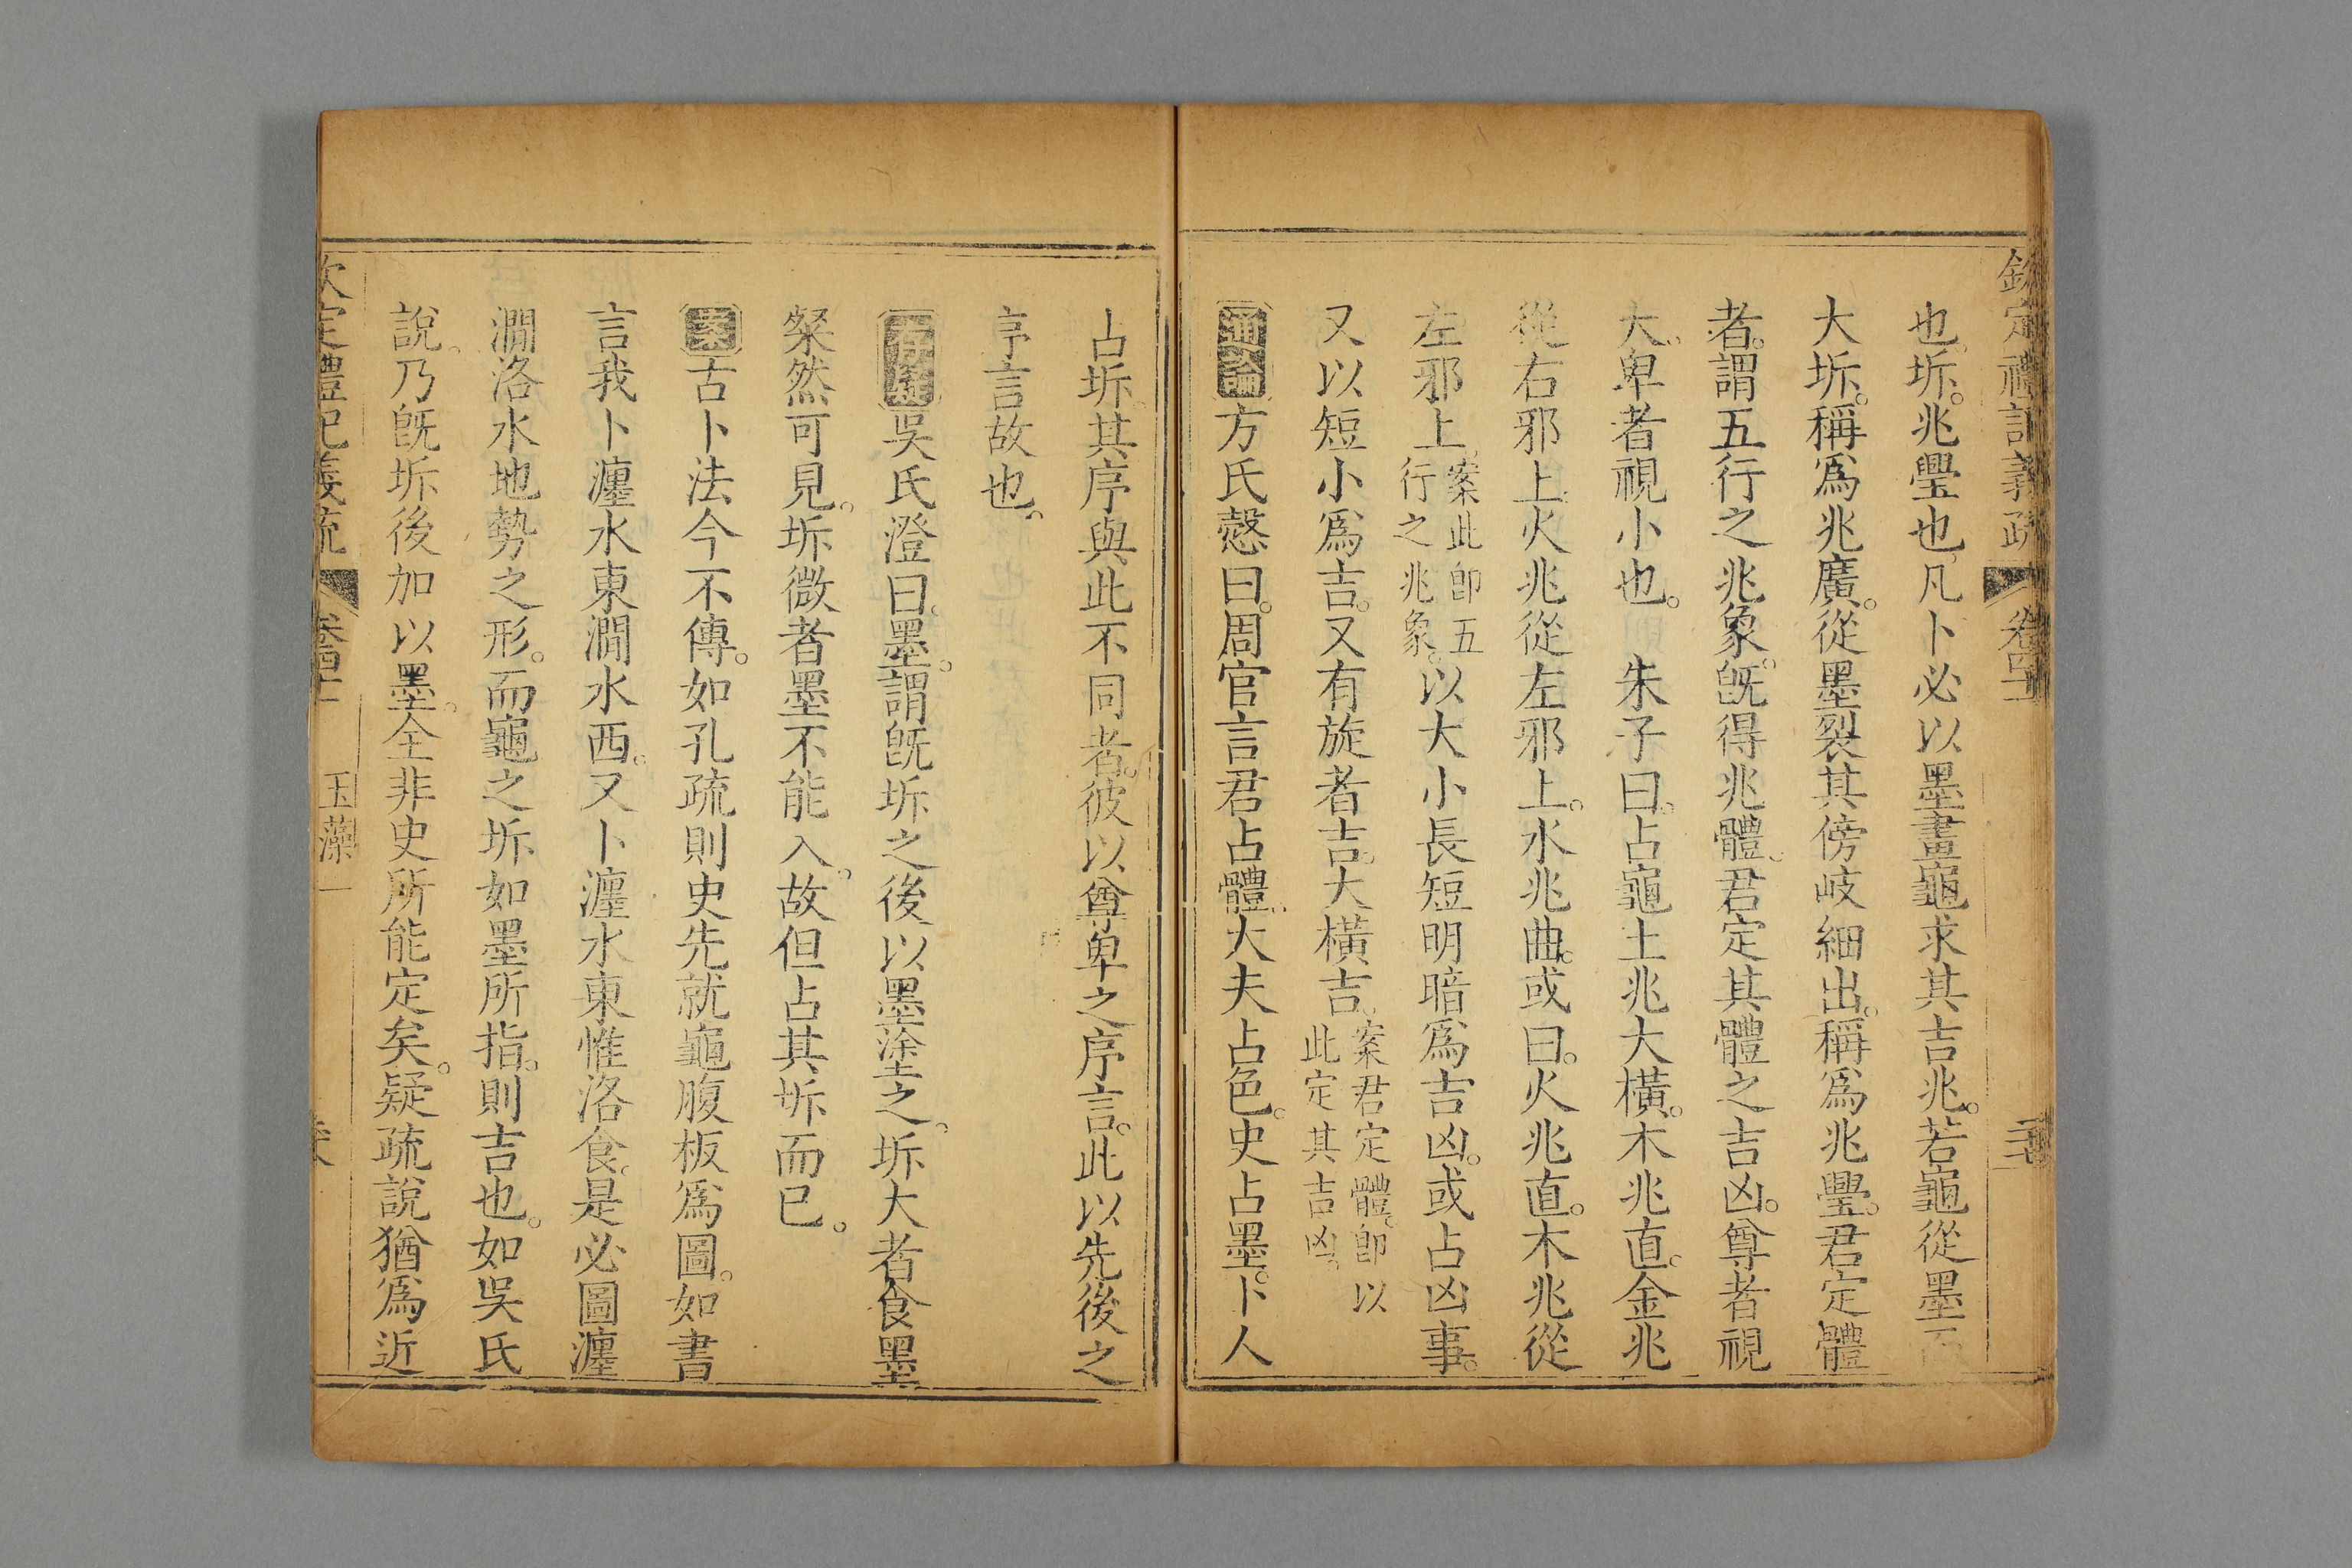 欽定禮記義疏 卷四十一
也。坼。兆璺也。凡卜必以墨畫龜求其吉兆。若龜從墨而
大坼。稱爲兆廣。從墨裂其傍岐細出。稱爲兆璺。君定體
者。謂五行之兆象。旣得兆體。君定其體之吉凶。尊者視
大。卑者視小也。 朱子曰。占龜土兆大橫。木兆直。金兆
從右邪上。火兆從左邪上。水兆曲。或曰。火兆直。木兆從
左邪上。案此卽五
行之兆象。以大小長短明暗爲吉凶。或占凶事。
又以短小爲吉。又有旋者吉。大橫吉。案君定體。卽以
此定其吉凶。
通論方氏慤曰。周官言君占體。大夫占色。史占墨。卜人
占坼。其序與此不同者。彼以尊卑之序言。此以先後之
序言故也。
存疑吳氏澄曰。墨。謂旣坼之後以墨塗之。坼大者食墨
粲然可見。坼微者墨不能入。故但占其坼而已。
案古卜法今不傳。如孔疏則史先就龜腹板爲圖。如書
言我卜瀍水東澗水西。又卜瀍水東惟洛食。是必圖瀍
澗洛水地勢之形。而龜之坼如墨所指。則吉也。如吳氏
說。乃旣坼後加以墨。全非史所能定矣。疑疏說猶爲近
欽定禮記義疏 玉藻一